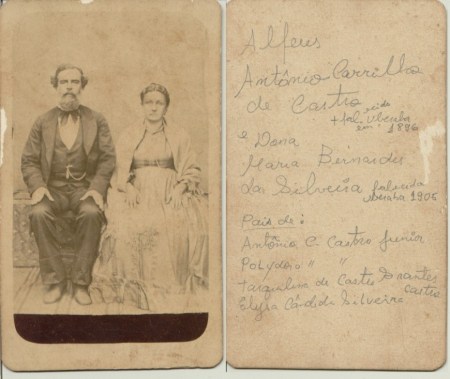 Alferes
Antônio Carrilho
de Castro
+ fal. Uberaba
em 1896
e Dona
Maria Bernardes
da Silveira falecida
Uberaba 1906
Pais de:
Antônio C. Castro Junior
Polydoro " "
Tarquilina de Castro
Castro
Elysa Cândida Silveira